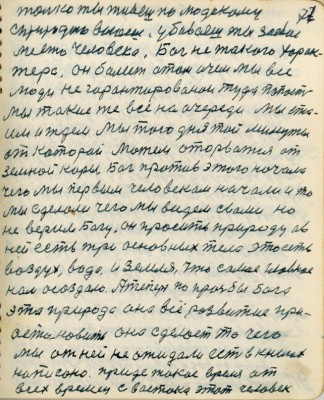 только ты живеш по людскому 71
убиваеш ты злое
место человека. Бог не такого харак-
тера, он болит этом и чем мы все
люди не гарантированы туда попасть
мы такие же все на очереди мы сто-
им и ждем мы того дня той минуты
от которой можем оторватся от
земной коры. Бог против этого начала
чего мы первым человеком начали и то
мы сделали чего мы видем сами но
не верим Богу, он просить природу а в
ней есть три основных тела это есть
воздух, вода, и земля, что самое главное
нам создало. А теперь по прозьбы бога
эта природа она всё развитие при-
остановить она сделает то чего
мы от ней не ожидали есть в книгах
написано. приде такое время от
всех времен с востока этот человек